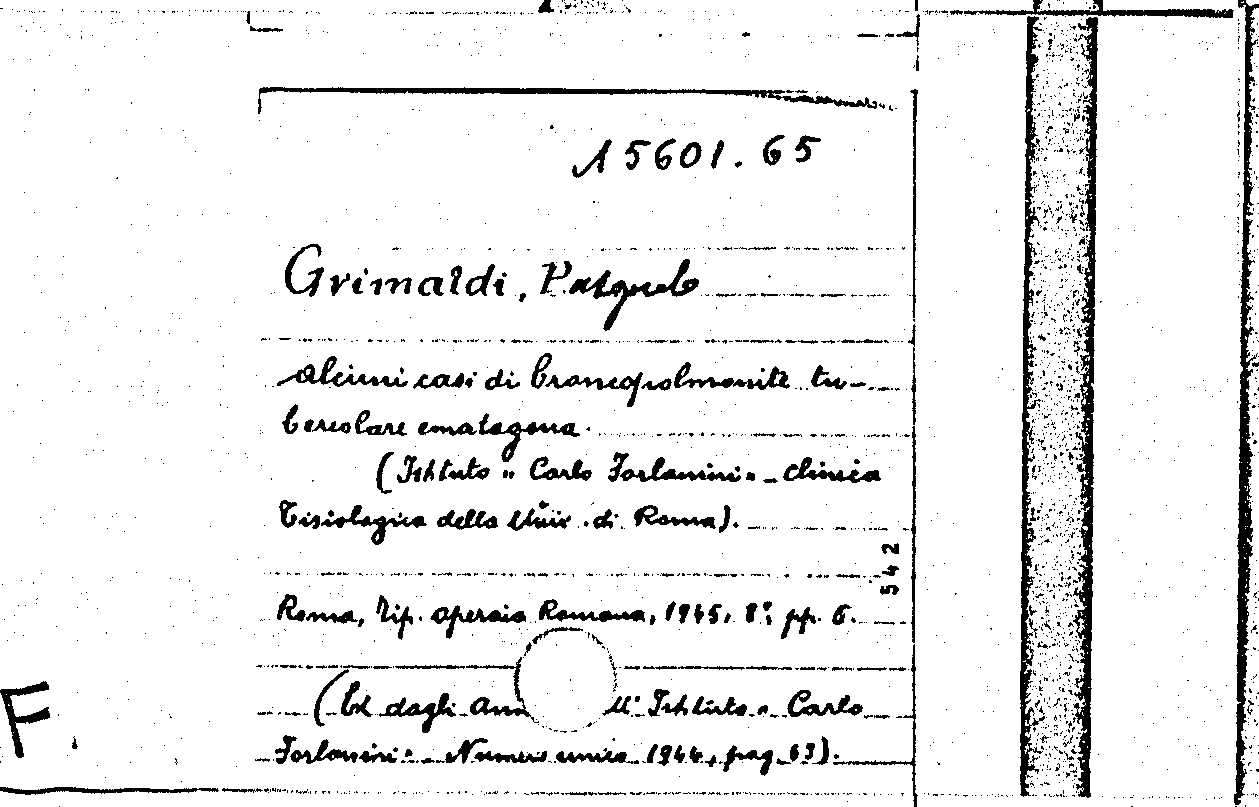 15601.65
Grimaldi, Pasquale
Alcuni casi di broncopolmonite tu-
bercolare ematogena.
(Istituto "Carlo Forlanini" - clinica
Tisiologica della Univ. di Roma).
542
Roma, Tip. operaia Romana, 1945, 8°, pp. 6.
(Est dagli Ann ll' Istituto "Carlo
Forlanini". Numero unico 1944, pag. 63).
F.